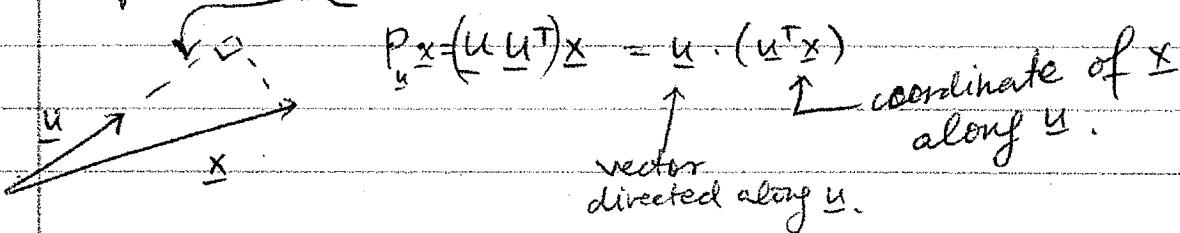 P_u x = (u u^T) x = u · (u^T x)
coordinate of x
along u.
u
x
vector
directed along u.